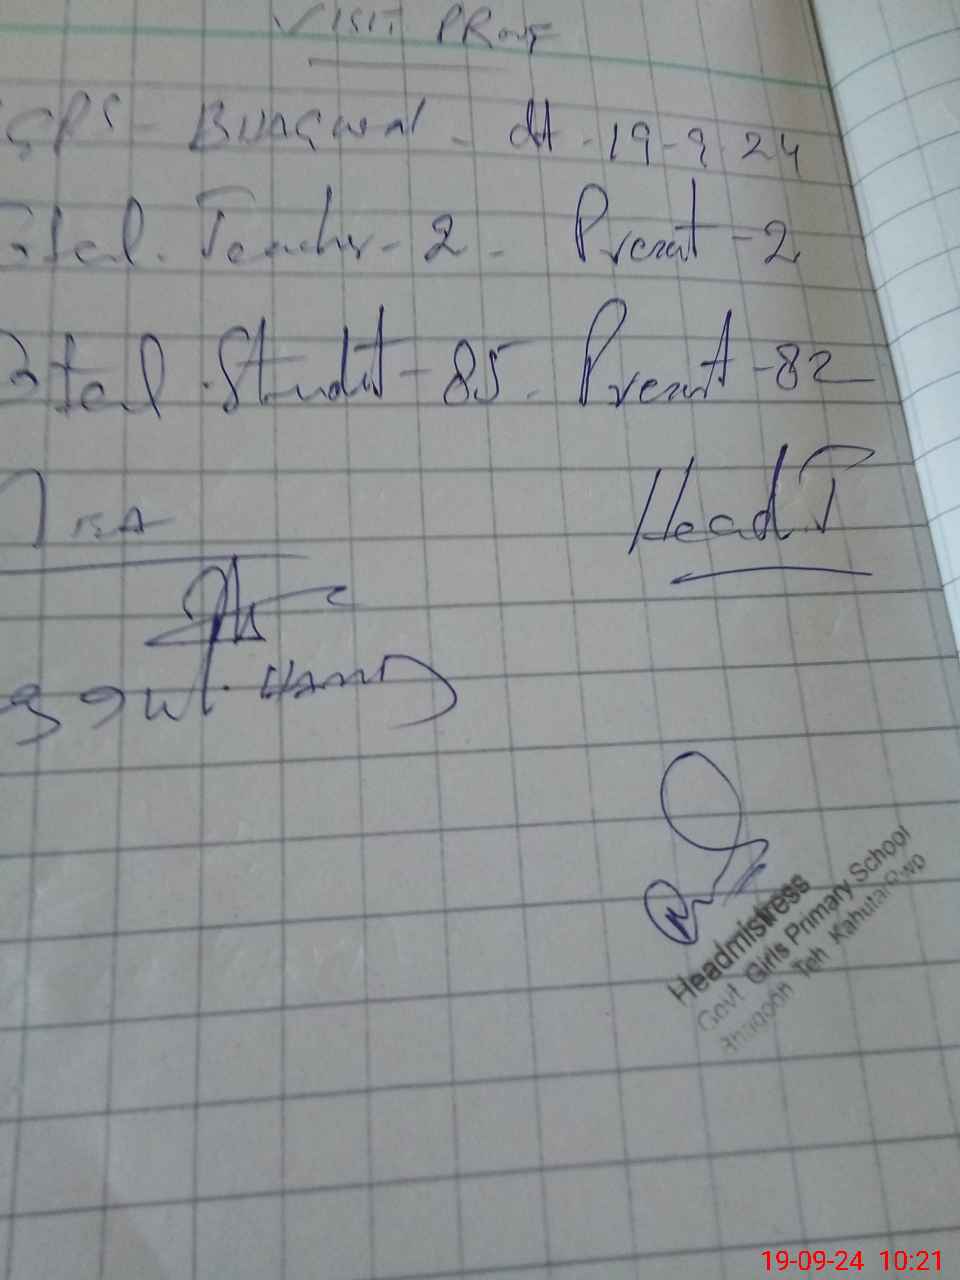 VISIT PROOF
GGPS - BHAGWAL - dt - 19-9-24
Total. Teacher - 2 - Present - 2
Total Student - 85 - Present - 82
Head T
Headmistress
Govt. Girls Primary School
Teh Kahuta Rwp
19-09-24 10:21